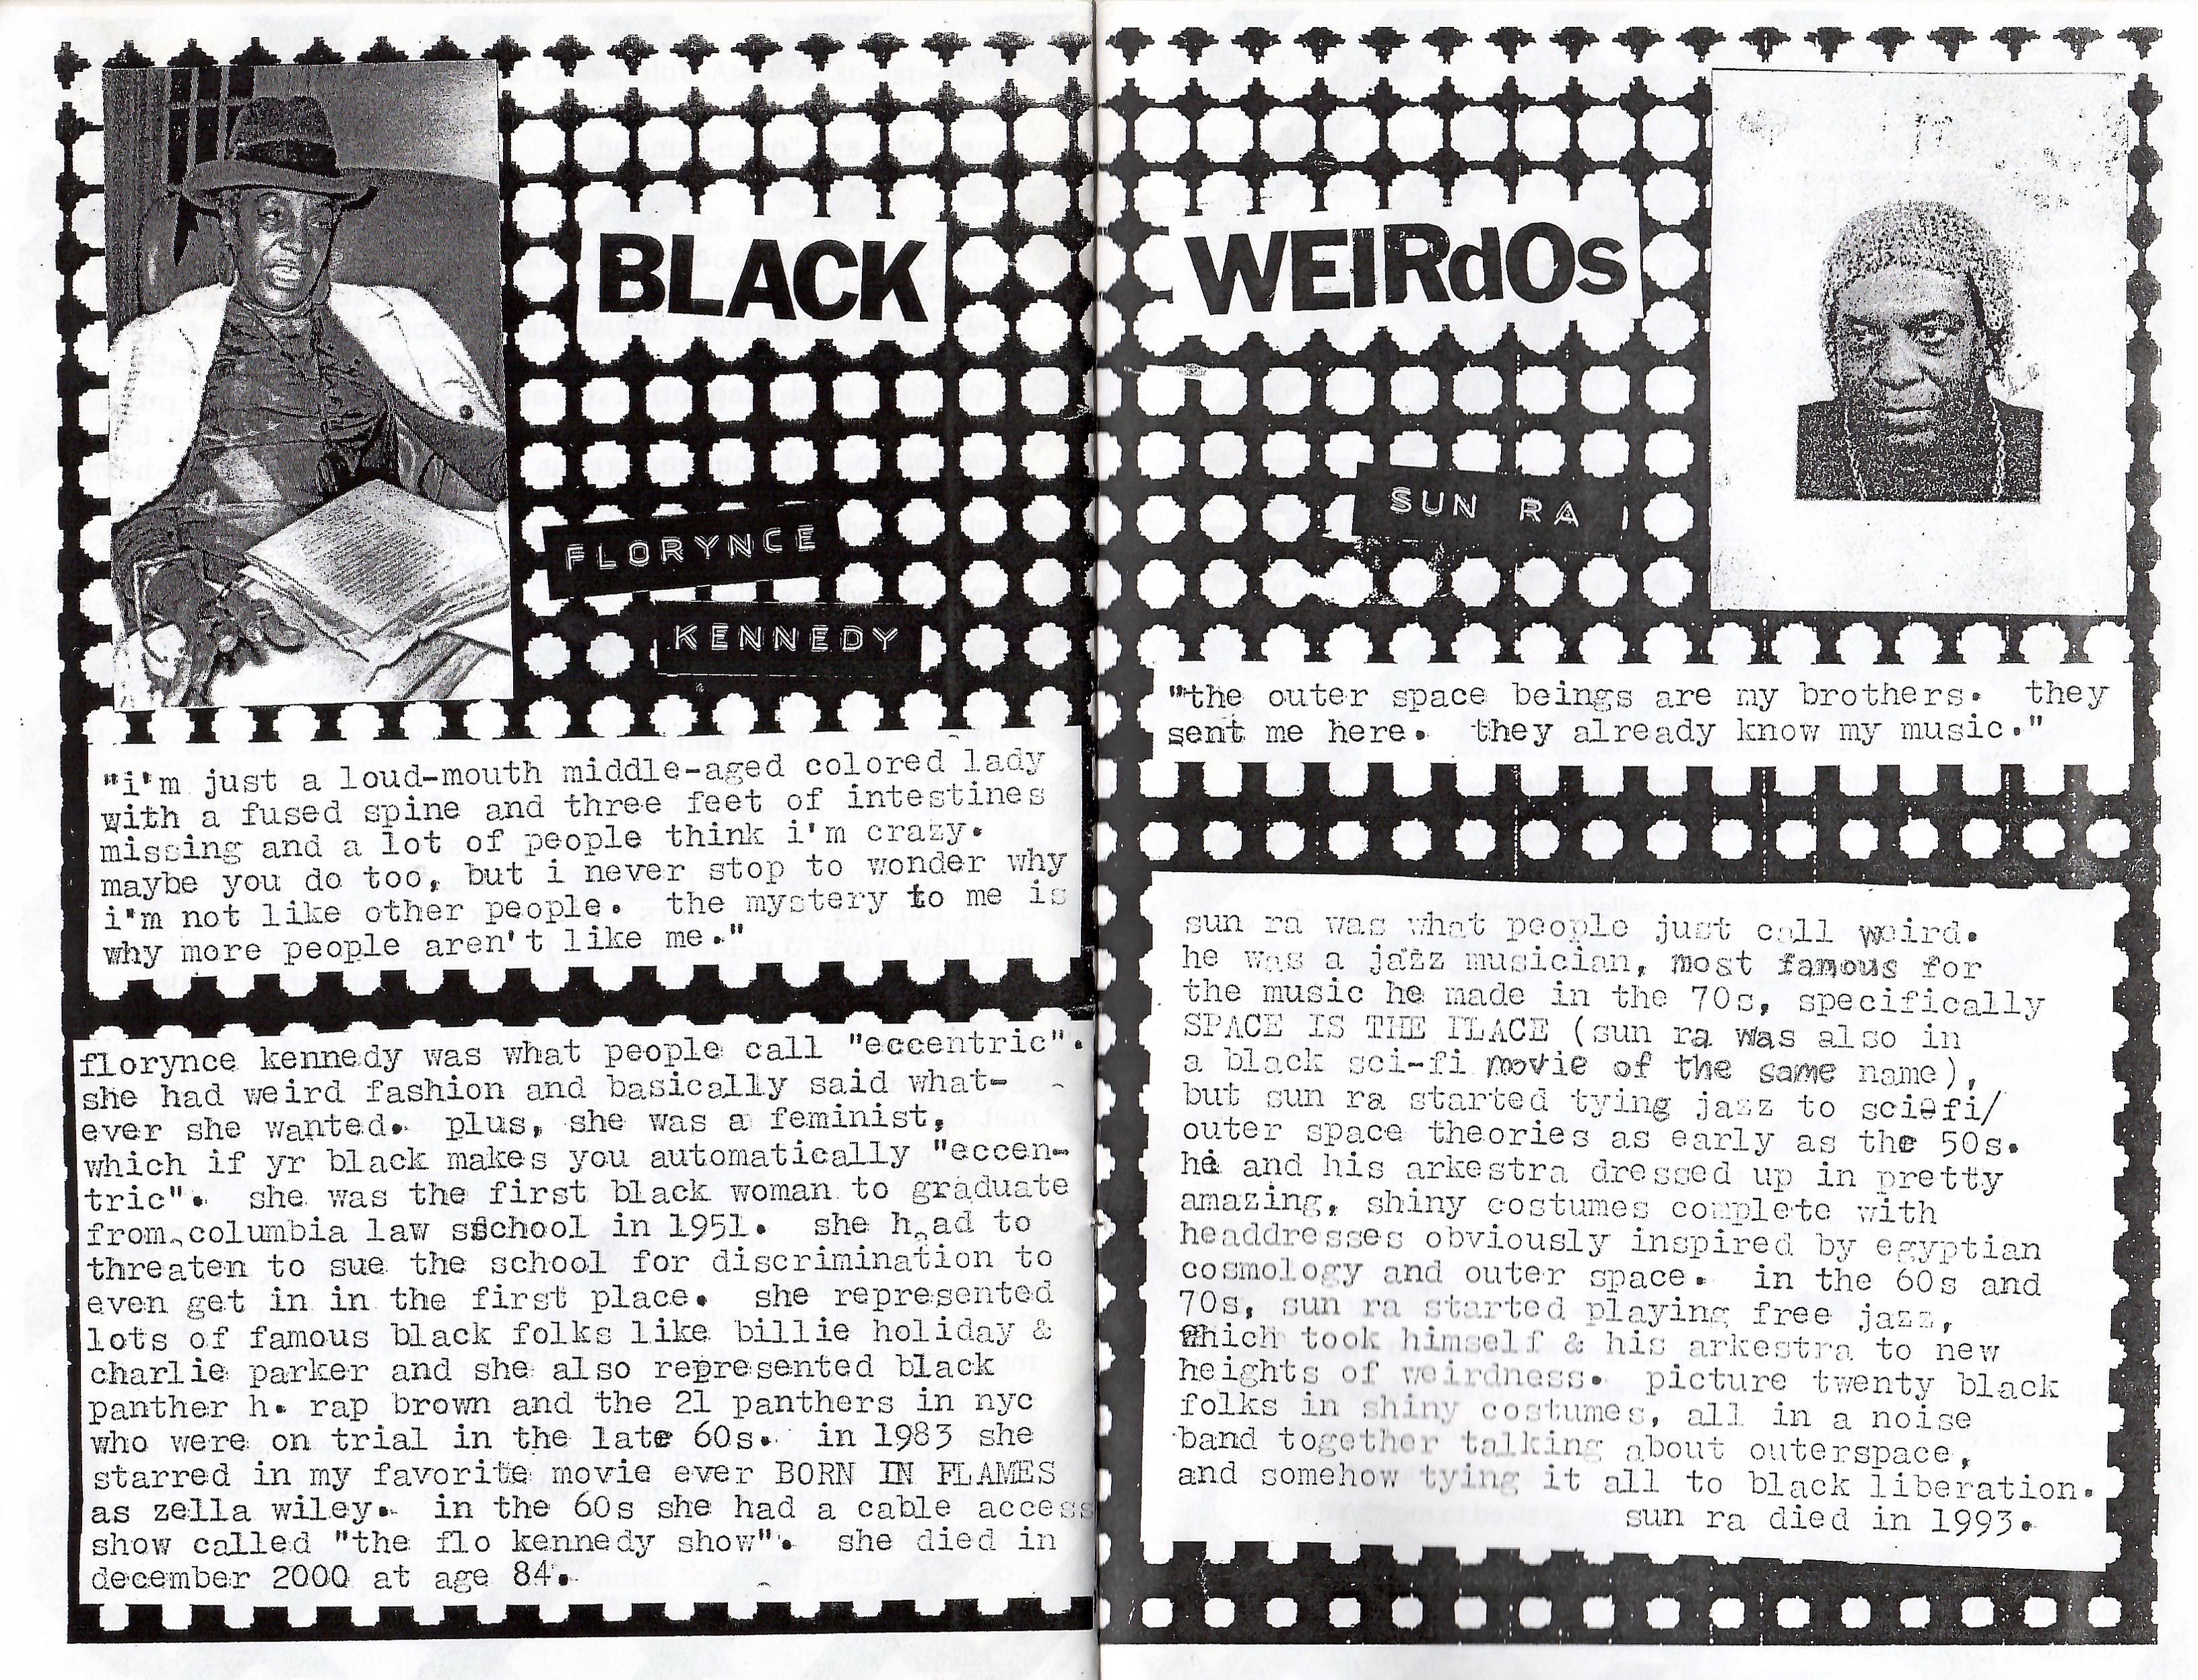 BLACK
FLORYNCE
KENNEDY
"i'm just a loud-mouth middle-aged colored lady
with a fused spine and three feet of intestines
missing and a lot of people think i'm crazy.
maybe you do too, but i never stop to wonder why
i'm not like other people.  the mystery to me is
why more people aren't like me."
florynce kennedy was what people call "eccentric".
she had weird fashion and basically said what-
ever she wanted.  plus, she was a feminist,
which if yr black makes you automatically "eccen-
tric".  she was the first black woman to graduate
from columbia law sschool in 1951.  she h ad to
threaten to sue the school for discrimination to
even get in in the first place.  she represented
lots of famous black folks like billie holiday &
charlie parker and she also represented black
panther h. rap brown and the 21 panthers in nyc
who were on trial in the late 60s.  in 1983 she
starred in my favorite movie ever BORN IN FLAMES
as zella wiley.  in the 60s she had a cable access
show called "the flo kennedy show".  she died in
december 2000 at age 84.
WEIRdOs
SUN RA
"the outer space beings are my brothers.  they
sent me here.  they already know my music."
sun ra was what people just call weird.
he was a jazz musician, most famous for
the music he made in the 70s, specifically
SPACE IS THE PLACE (sun ra was also in
a black sci-fi movie of the same name),
but sun ra started tying jazz to sciefi/
outer space theories as early as the 50s.
he and his arkestra dressed up in pretty
amazing, shiny costumes complete with
headdresses obviously inspired by egyptian
cosmology and outer space.  in the 60s and
70s, sun ra started playing free jazz,
which took himself & his arkestra to new
heights of weirdness.  picture twenty black
folks in shiny costumes, all in a noise
band together talking about outerspace,
and somehow tying it all to black liberation.
sun ra died in 1993.